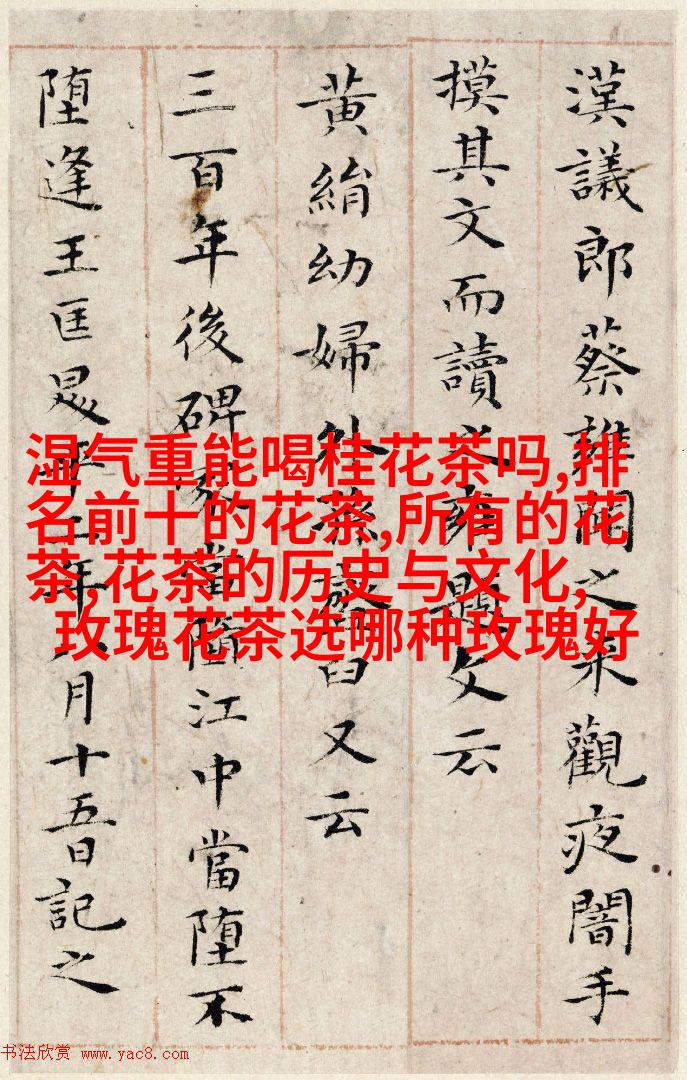 漢議郎蔡雍聞之来觀夜闇手
摸其文而讀之雍題文云
黃絹幼婦外孫臼又云
三百年後碑冢當墮江中當堕不
堕逢王匡昇平二年八月十五日記之
湿气重能喝桂花茶吗,排
名前十的花茶,所有的花
茶,花茶的历史与文化,
玫瑰花茶选哪种玫瑰好
书法欣赏 www.yac8.com